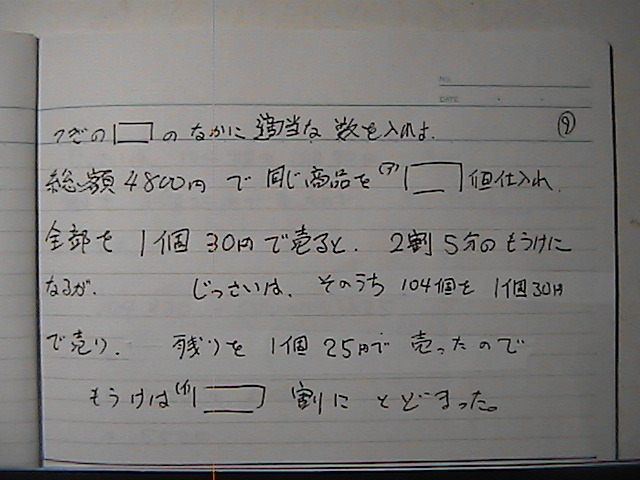 No.
DATE
つぎの□のなかに適当な数を入れよ. ⑨
総額4800円で同じ商品を(ア)□個仕入れ
全部を1個30円で売ると、2割5分のもうけに
なるが、じっさいは、そのうち104個を1個30円
で売り、残りを1個25円で売ったので
もうけは(イ)□割にとどまった。